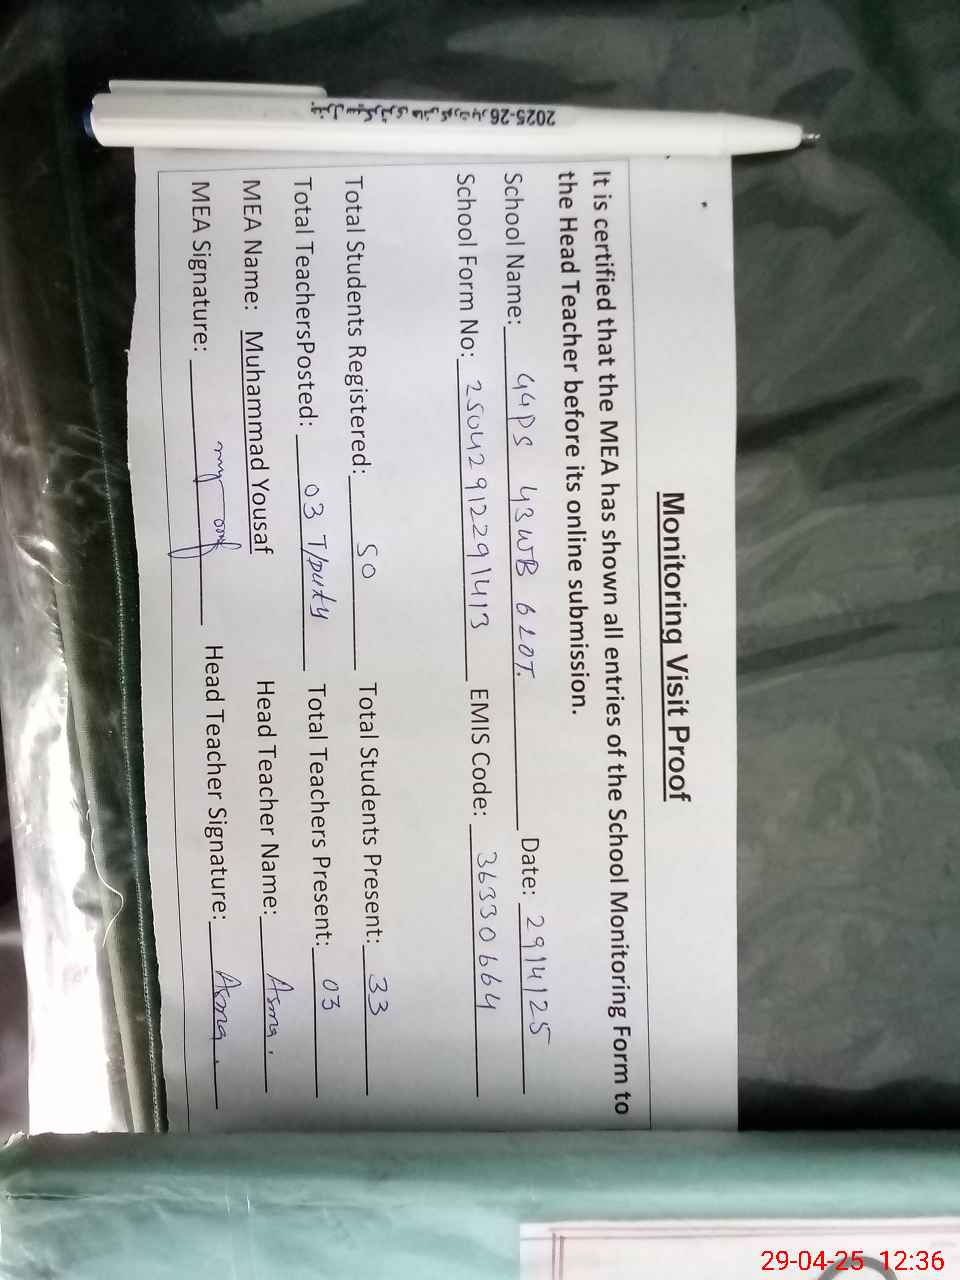 Monitoring Visit Proof
It is certified that the MEA has shown all entries of the School Monitoring Form to
the Head Teacher before its online submission.
School Name: GGPS 43WB BLOT. Date: 29/4/25
School Form No: 25042912291413 EMIS Code: 36330664
Total Students Registered: 50 Total Students Present: 33
Total TeachersPosted: 03 T/Duty Total Teachers Present: 03
MEA Name: Muhammad Yousaf Head Teacher Name: Asma.
MEA Signature: Head Teacher Signature: Asma.
2025-26
29-04-25 12:36